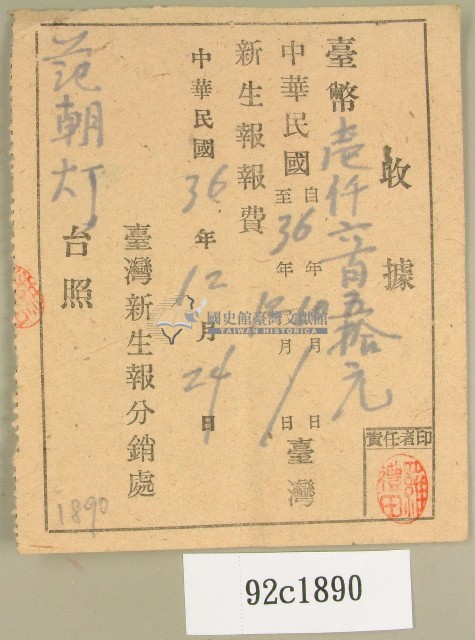 收據
臺幣壹仟六百五拾元
中華民國自年10月1日臺灣
至36年12月日
新生報報費
中華民國36年12月24日
臺灣新生報分銷處
范朝灯台照
責任者印
國史館臺灣文獻館
TAIWAN HISTORICA
1890
92c1890